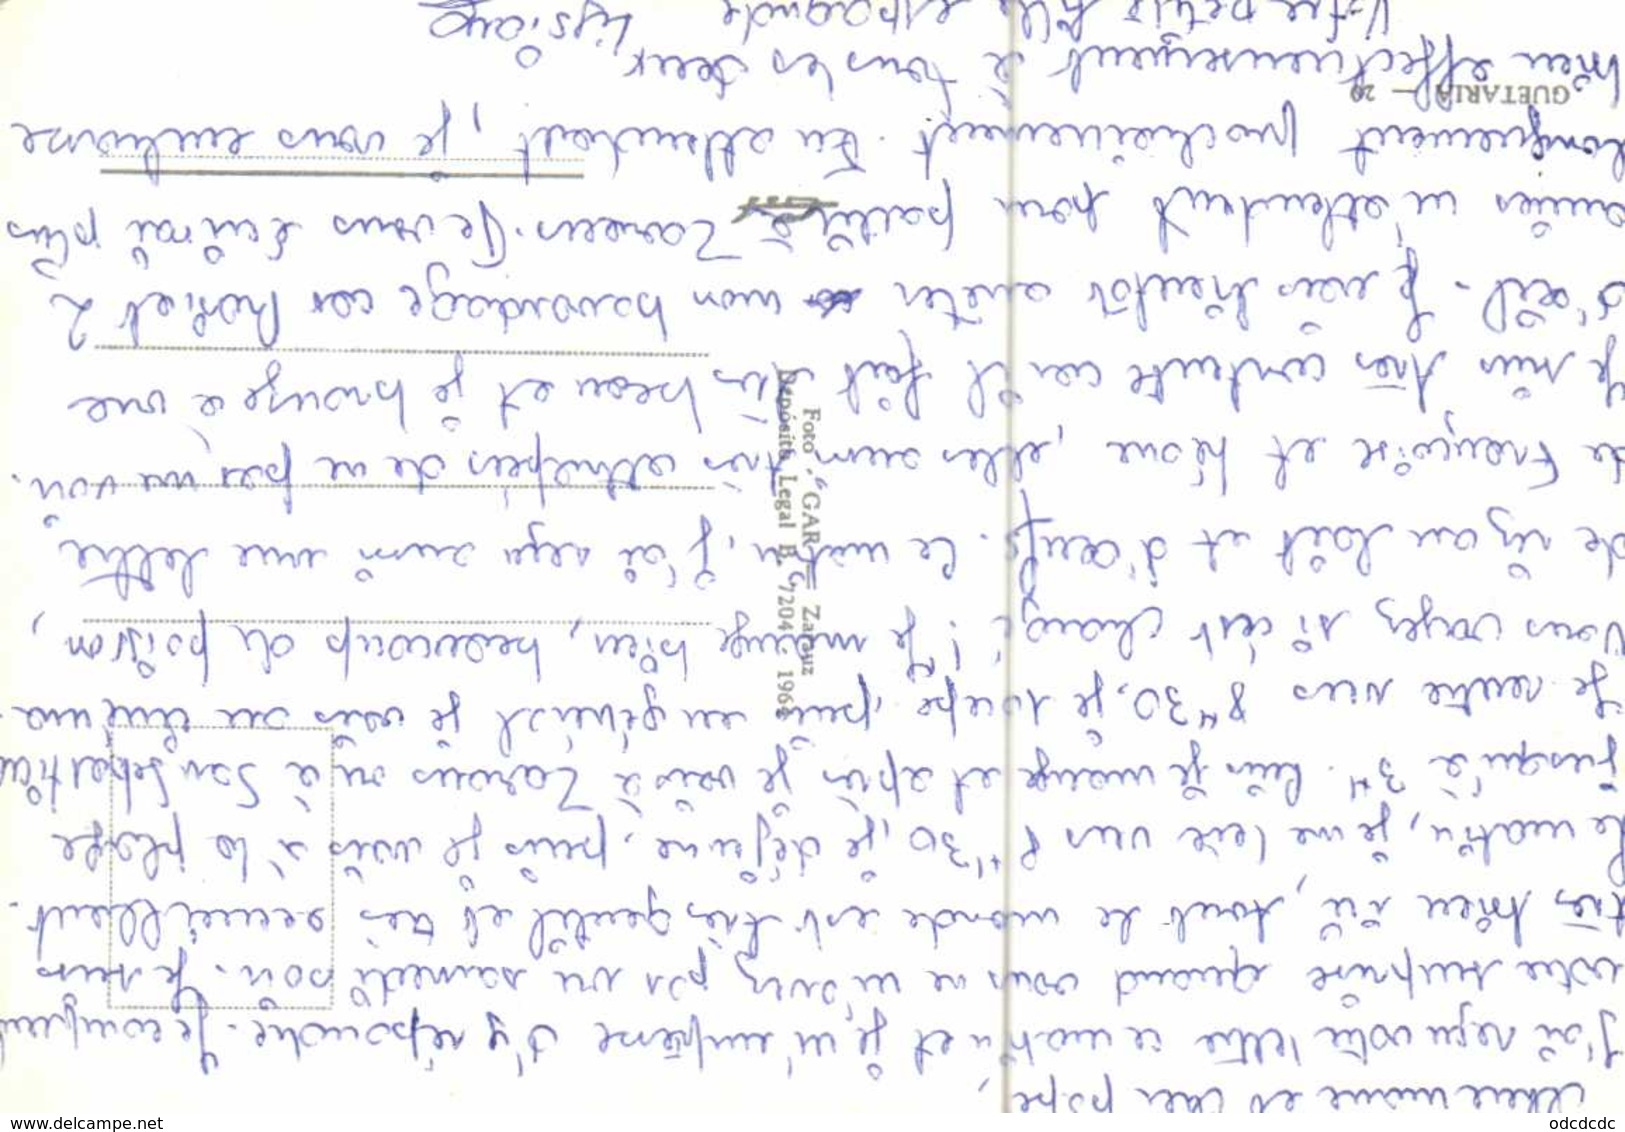 Chère mame et cher pape,
J'ai reçu votre lettre ce matin et je m'empresse d'y répondre. Je comprends
votre surprise quand vous ne m'avez pas vu samedi soir. Je suis
très bien ici, tout le monde est très gentil et très accueillant.
Le matin, je me lève vers 8H30, je déjeune, puis je vais à la plage
jusqu'à 3H. Puis je mange et après je vais à Zaraus ou à San Sebastian
Je rentre vers 8H30, je soupe, puis en général je vais au cinéma.
Vous voyez si c'est changé ! Je mange bien, beaucoup de poisson,
de riz au lait et d'oeufs. Ce matin, j'ai reçu aussi une lettre
de Françoise et , elles sont très de ne pas me voir.
Je suis très contente car il fait très beau et je bronze à vue
d'oeil. Je vais bientôt arrêter mon bavardage car et 2
amies m'attendent pour partir à Zaraus. Je vous écrirai plus
longuement prochainement. En attendant, je vous embrasse
bien affectueusement à tous les deux,
Votre petite fille espagnole
GUETARIA — 20
Foto "GAR" — Zarauz
Depósito Legal B. 7204 - 196
www.delcampe.net
odcdcdc